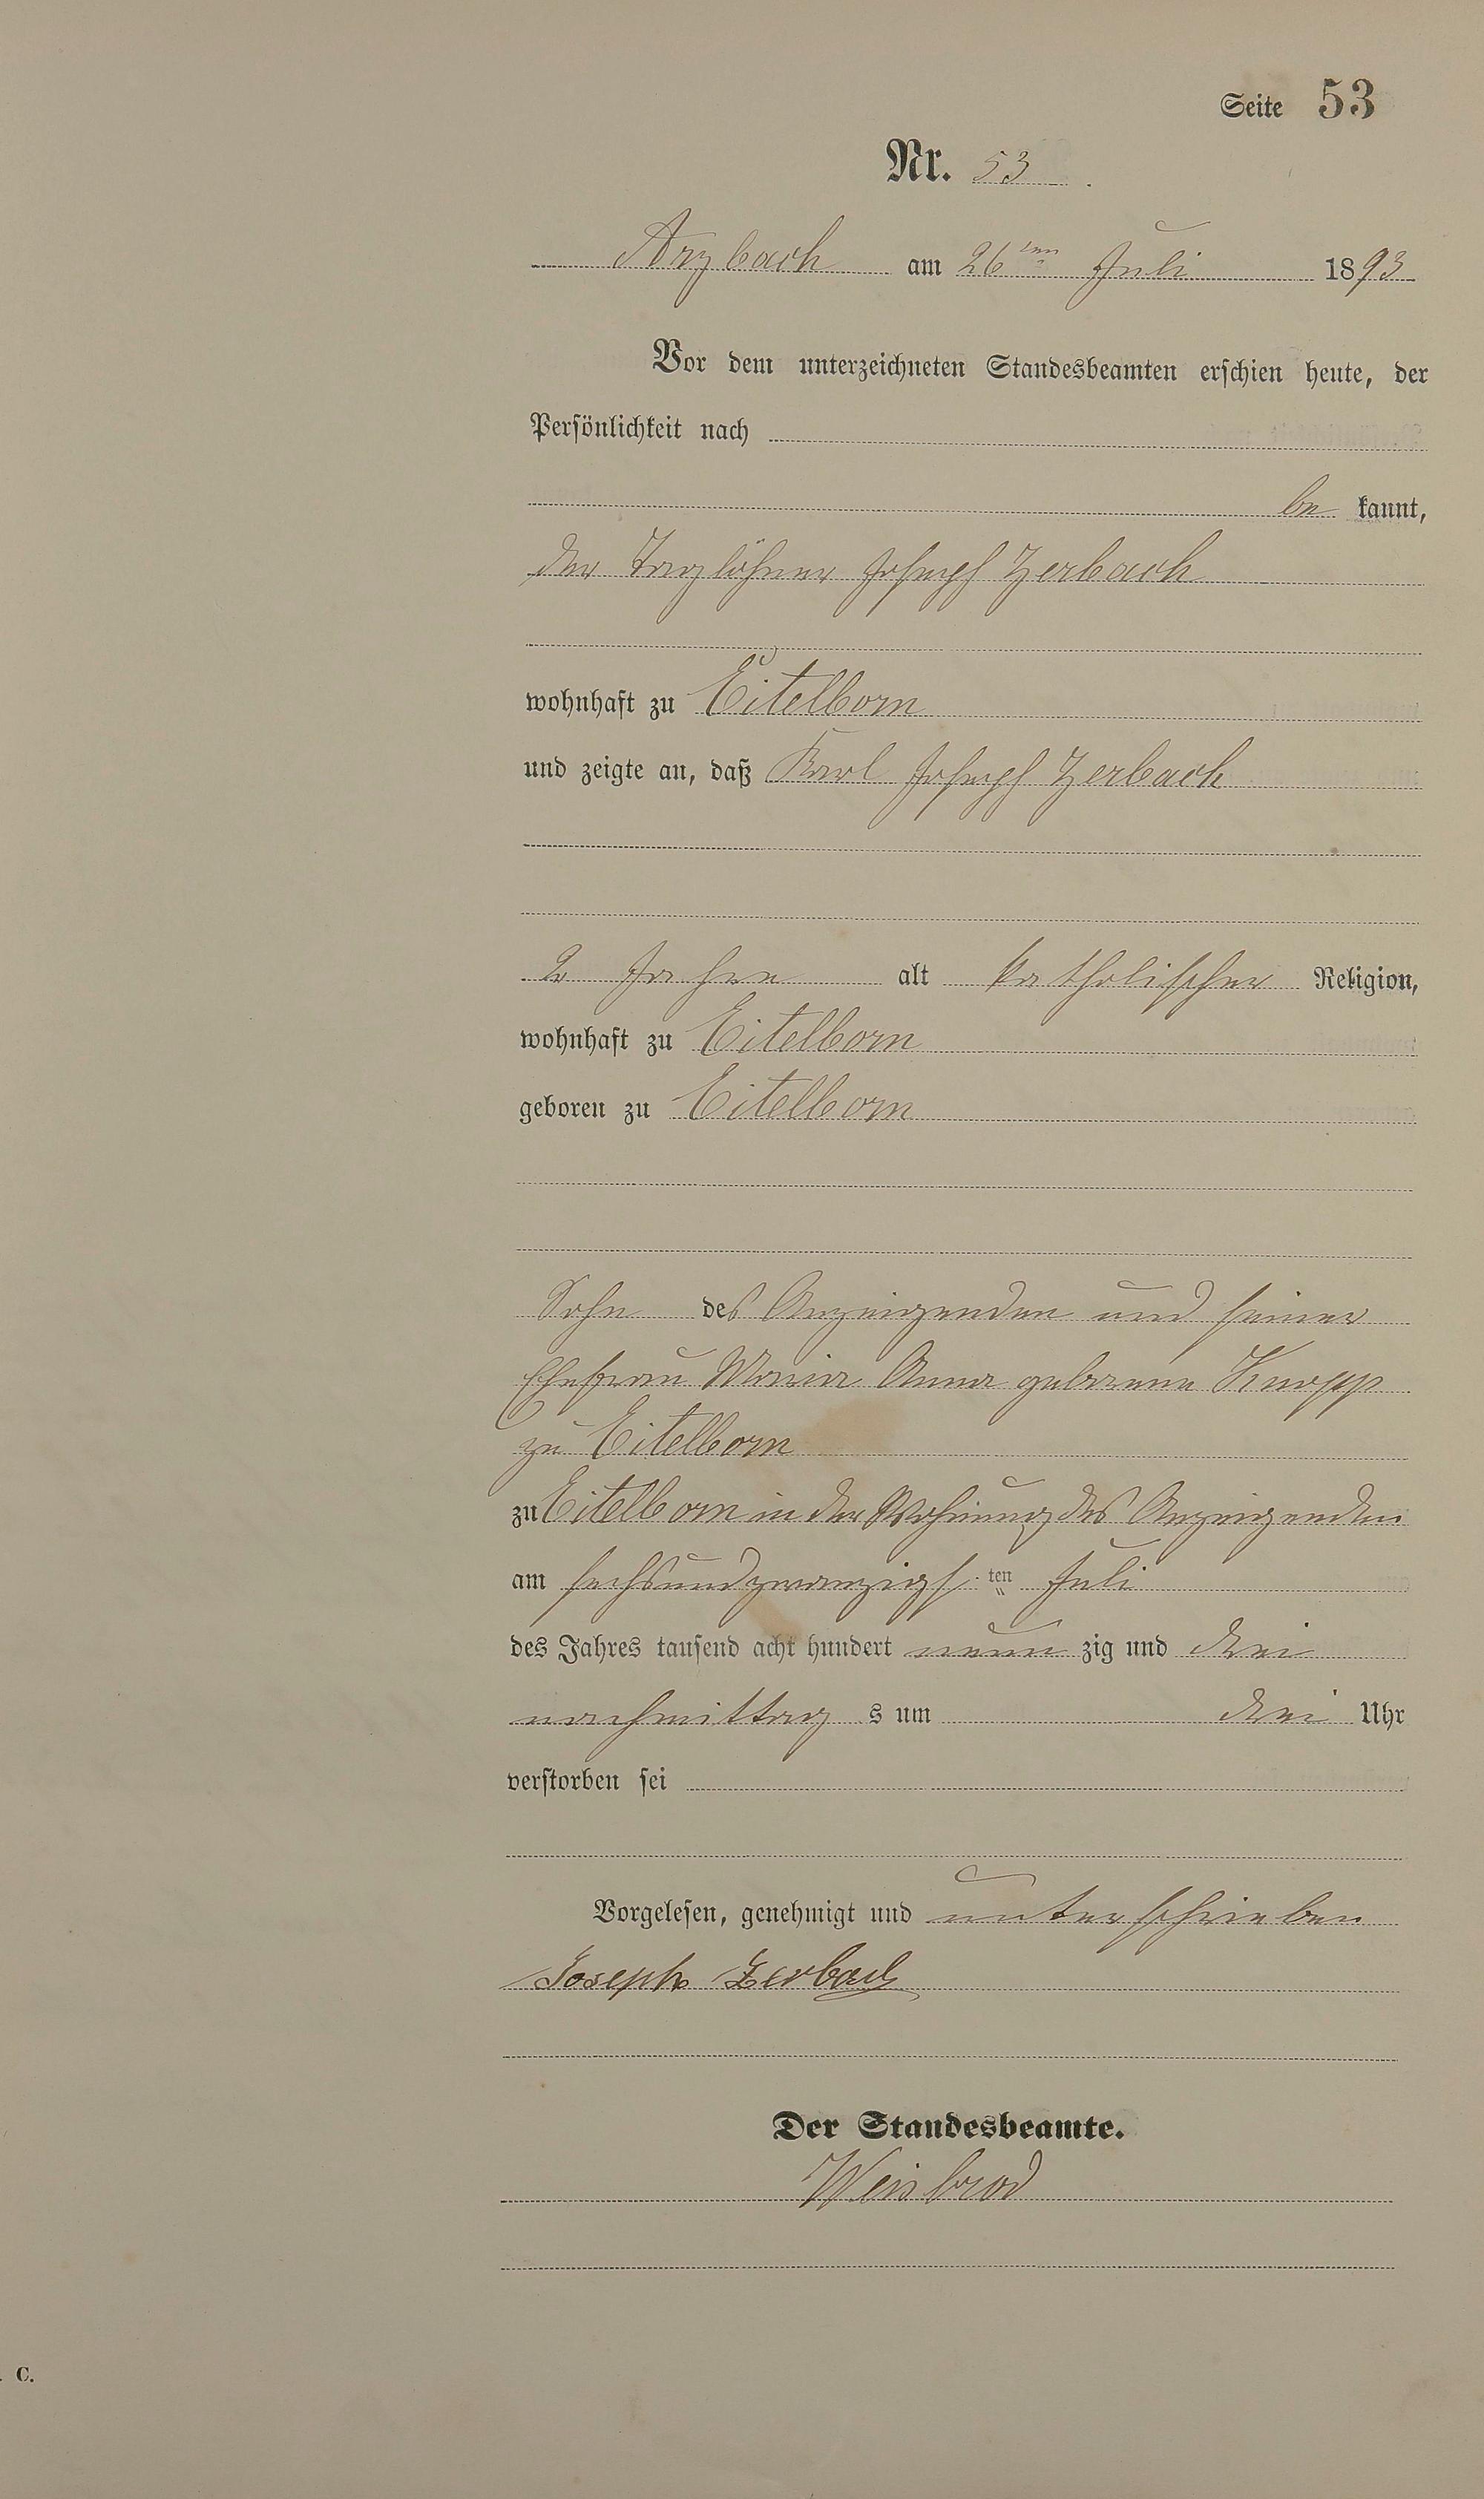 Seite 53
Nr. 53.
Arzbach am 26ten Juli 1893
Vor dem unterzeichneten Standesbeamten erschien heute, der
Persönlichkeit nach
be kannt,
der Taglöhner Joseph Zerbach
wohnhaft zu Eitelborn
und zeigte an, daß Karl Joseph Zerbach
2 Jahre alt katholischer Religion,
wohnhaft zu Eitelborn
geboren zu Eitelborn
Sohn des Anzeigenden und seiner
Ehefrau Maria Anna geborene Knopp
zu Eitelborn
zu Eitelborn in der Wohnung des Anzeigenden
am sechsundzwanzigsten Juli
des Jahres tausend acht hundert neun zig und drei
nachmittag s um drei Uhr
verstorben sei
Vorgelesen, genehmigt und unterschrieben
Joseph Zerbach
Der Standesbeamte.
Weisbrod
C.